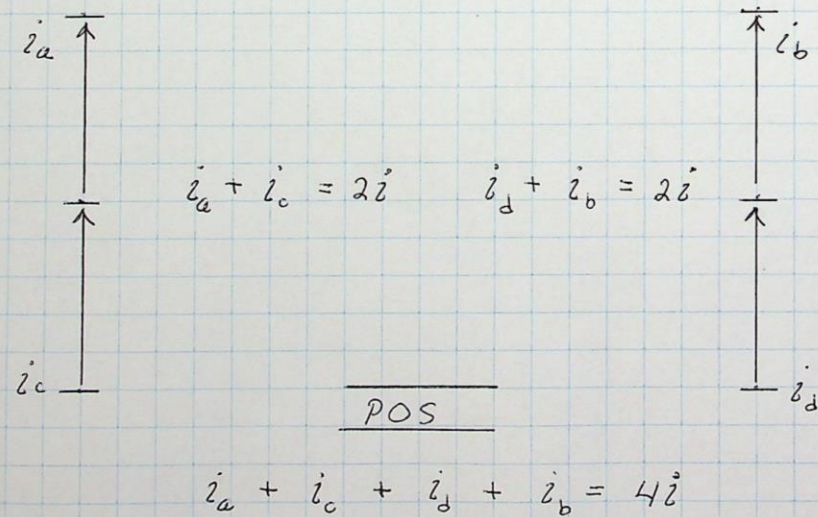 i_a i_b
i_a + i_c = 2i i_d + i_b = 2i
i_c i_d
POS
i_a + i_c + i_d + i_b = 4i